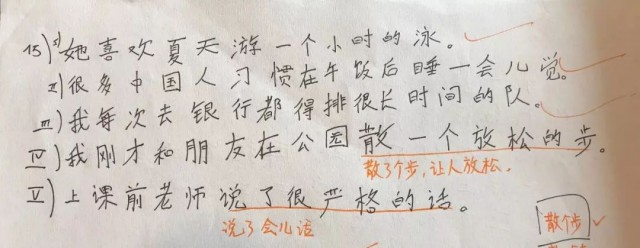 15) i) 她喜欢夏天游一个小时的泳。
ii) 很多中国人习惯在午饭后睡一会儿觉。
iii) 我每次去银行都得排很长时间的队。
iv) 我刚才和朋友在公园散一个放松的步。
散了个步,让人放松.
v) 上课前老师说了很严格的话。
说了会儿话
散个步